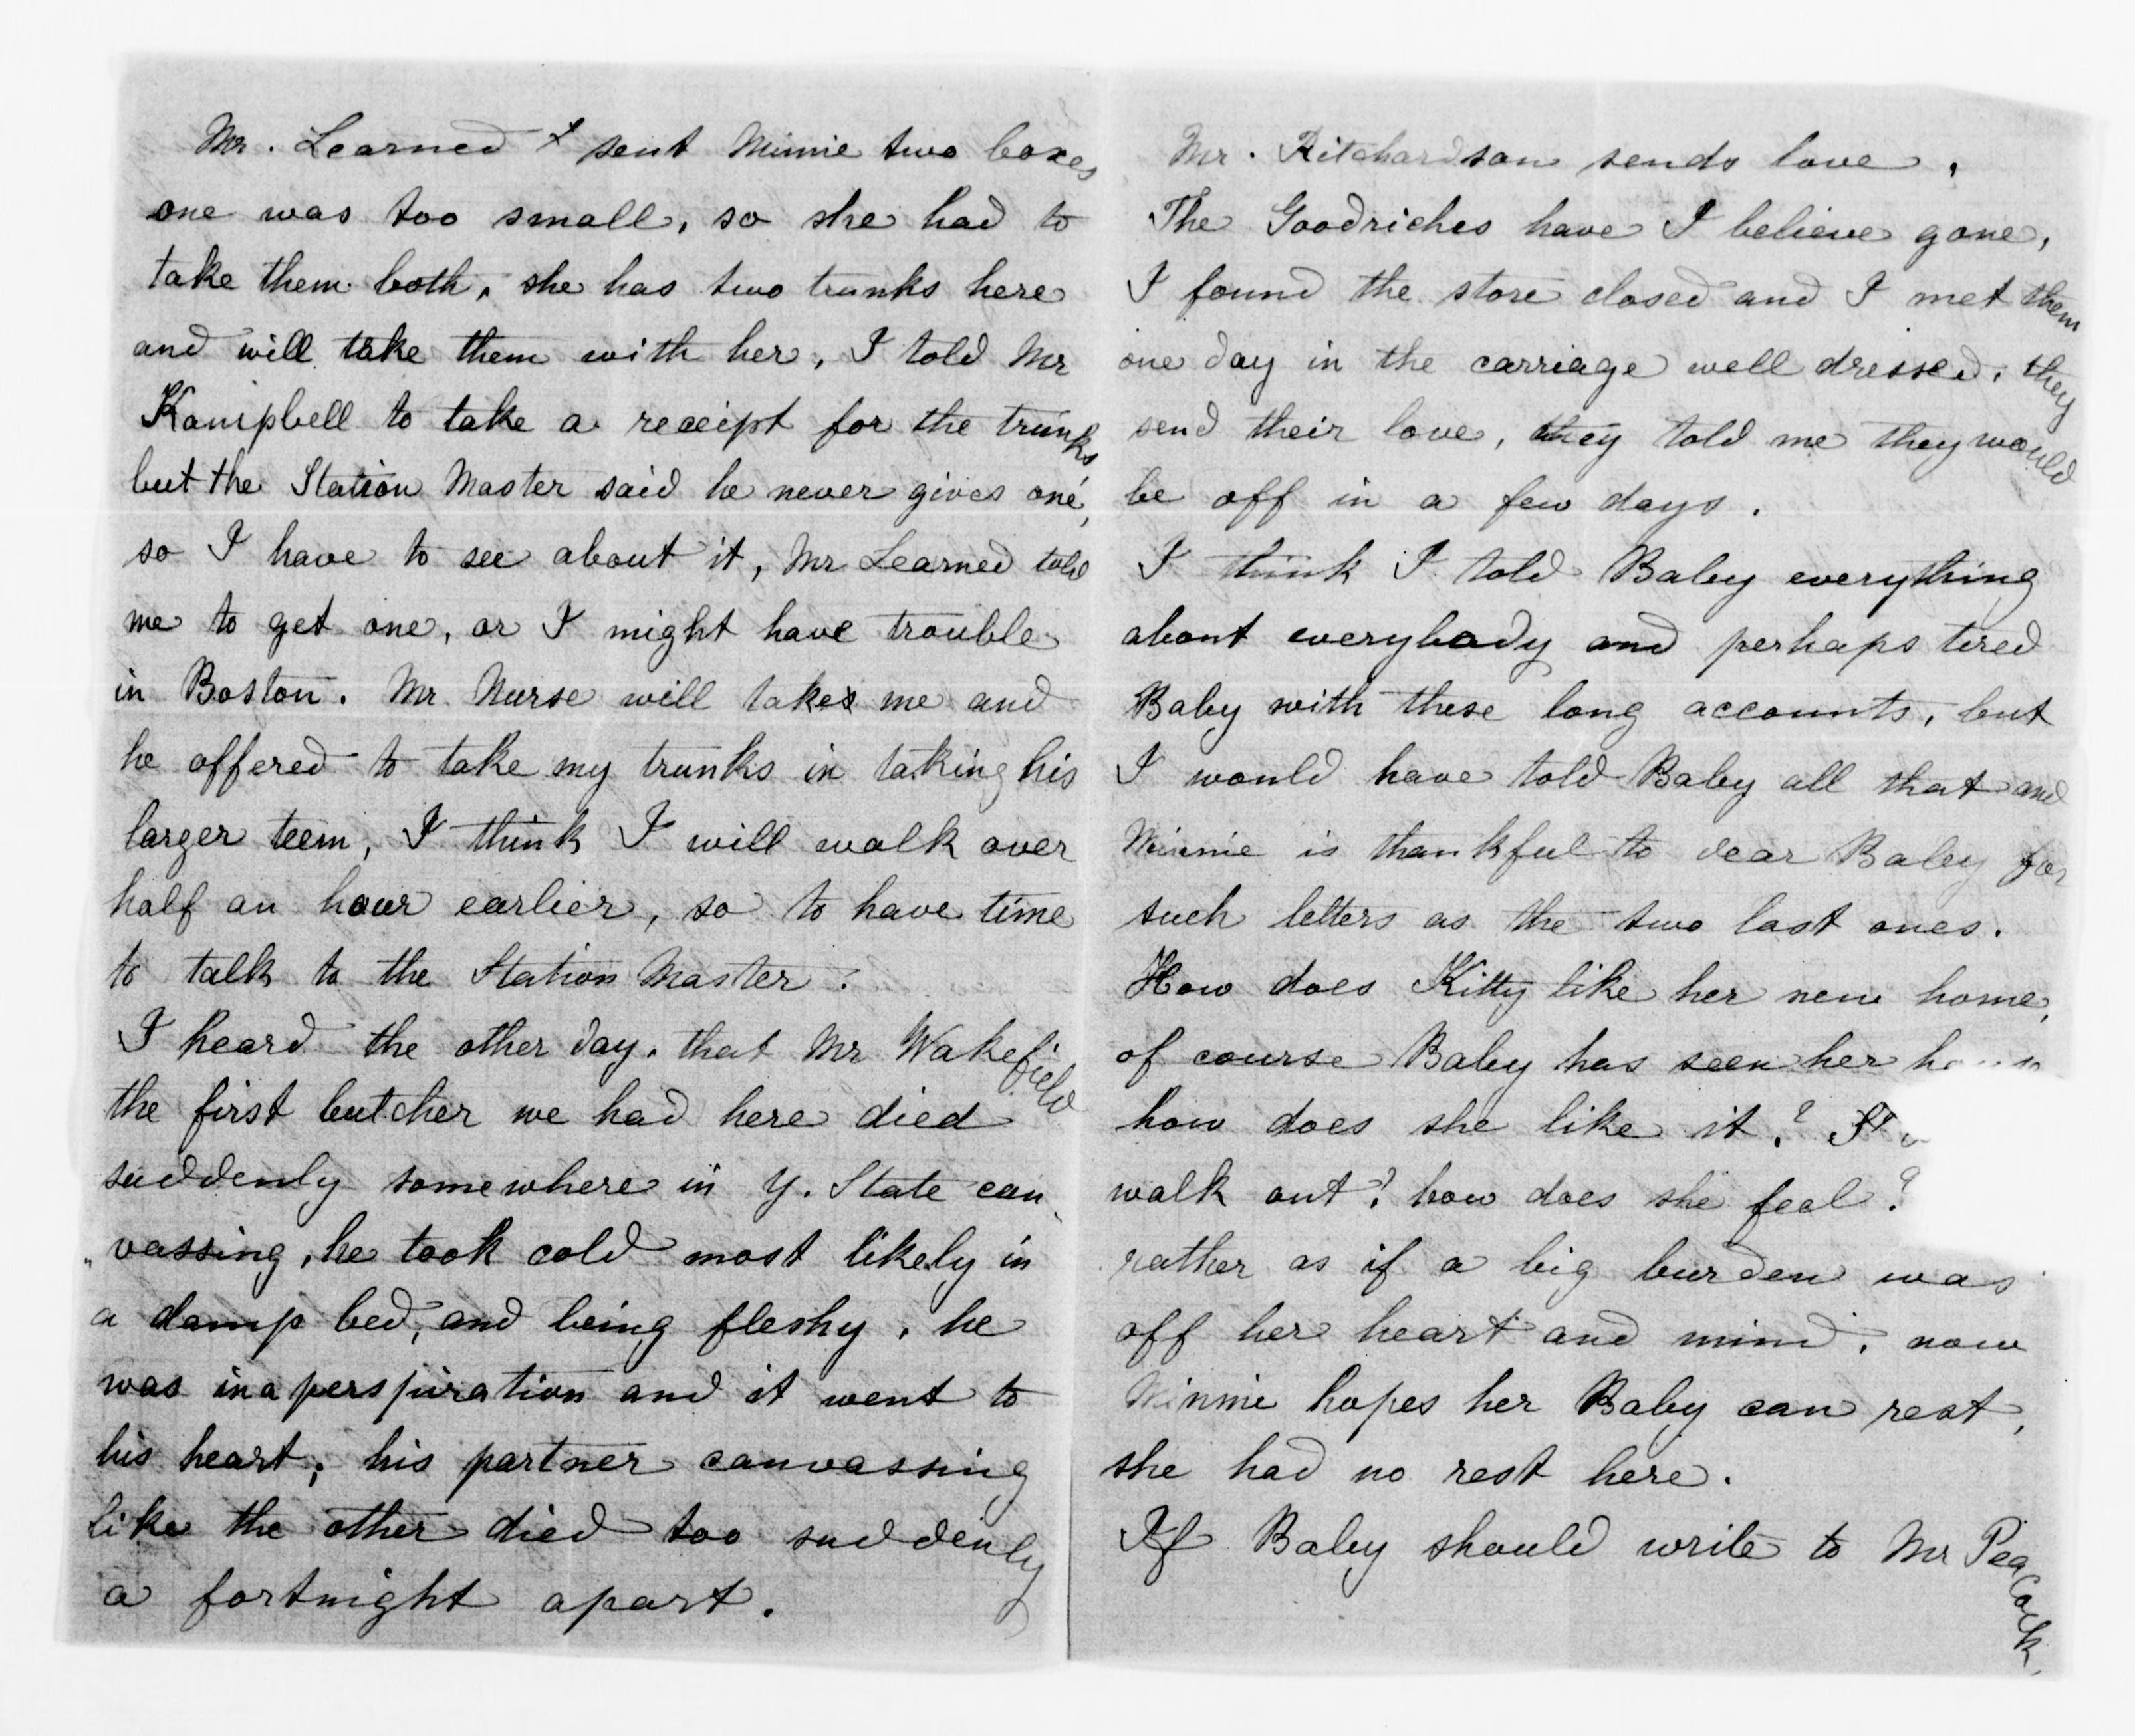 Mr. Learned sent Minnie two boxes
one was too small, so she had to
take them both, she has two trunks here
and will take them with her, I told Mr
Kampbell to take a receipt for the trunks
but the Station Master said he never gives one,
so I have to see about it, Mr Learned told
me to get one, or I might have trouble
in Boston. Mr Nurse will take me and
he offered to take my trunks in taking his
larger teem, I think I will walk over
half an hour earlier, so to have time
to talk to the Station Master.
I heard the other day, that Mr Wakefield
the first butcher we had here died
suddenly somewhere in Y. State can„
„vassing, he took cold most likely in
a damp bed, and being fleshy, he
was in a perspiration and it went to
his heart; his partner canvassing
like the other died too suddenly
a fortnight apart.
Mr. Ritchardson sends love,
The Goodriches have I believe gone,
I found the store closed and I met them
one day in the carriage well dressed, they
send their love, they told me they would
be off in a few days.
I think I told Baby everything
about everybody and perhaps tired
Baby with these long accounts, but
I would have told Baby all that and
Minnie is thankful to dear Baby for
such letters as the two last ones.
How does Kitty like her new home,
of course Baby has seen her
how does she like it?
walk out? how does she feel?
rather as if a big burden was
off her heart and mind, now
Minnie hopes her Baby can rest,
she had no rest here.
If Baby should write to Mr Peacock,